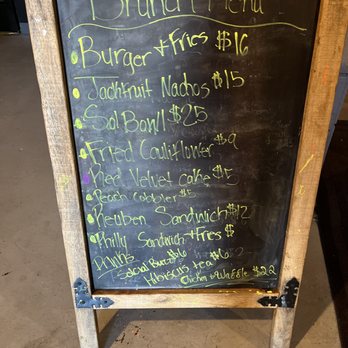 Brunch Menu
Burger + Fries $16
Jackfruit Nachos $15
Sol Bowl $25
Fried Cauliflower $9
Red Velvet cake $15
Peach cobbler $5
Reuben Sandwich $12
Philly Sandwich + Fries $
Drinks
Social Buzz $6
Hibiscus tea
Chicken & Waffle $22